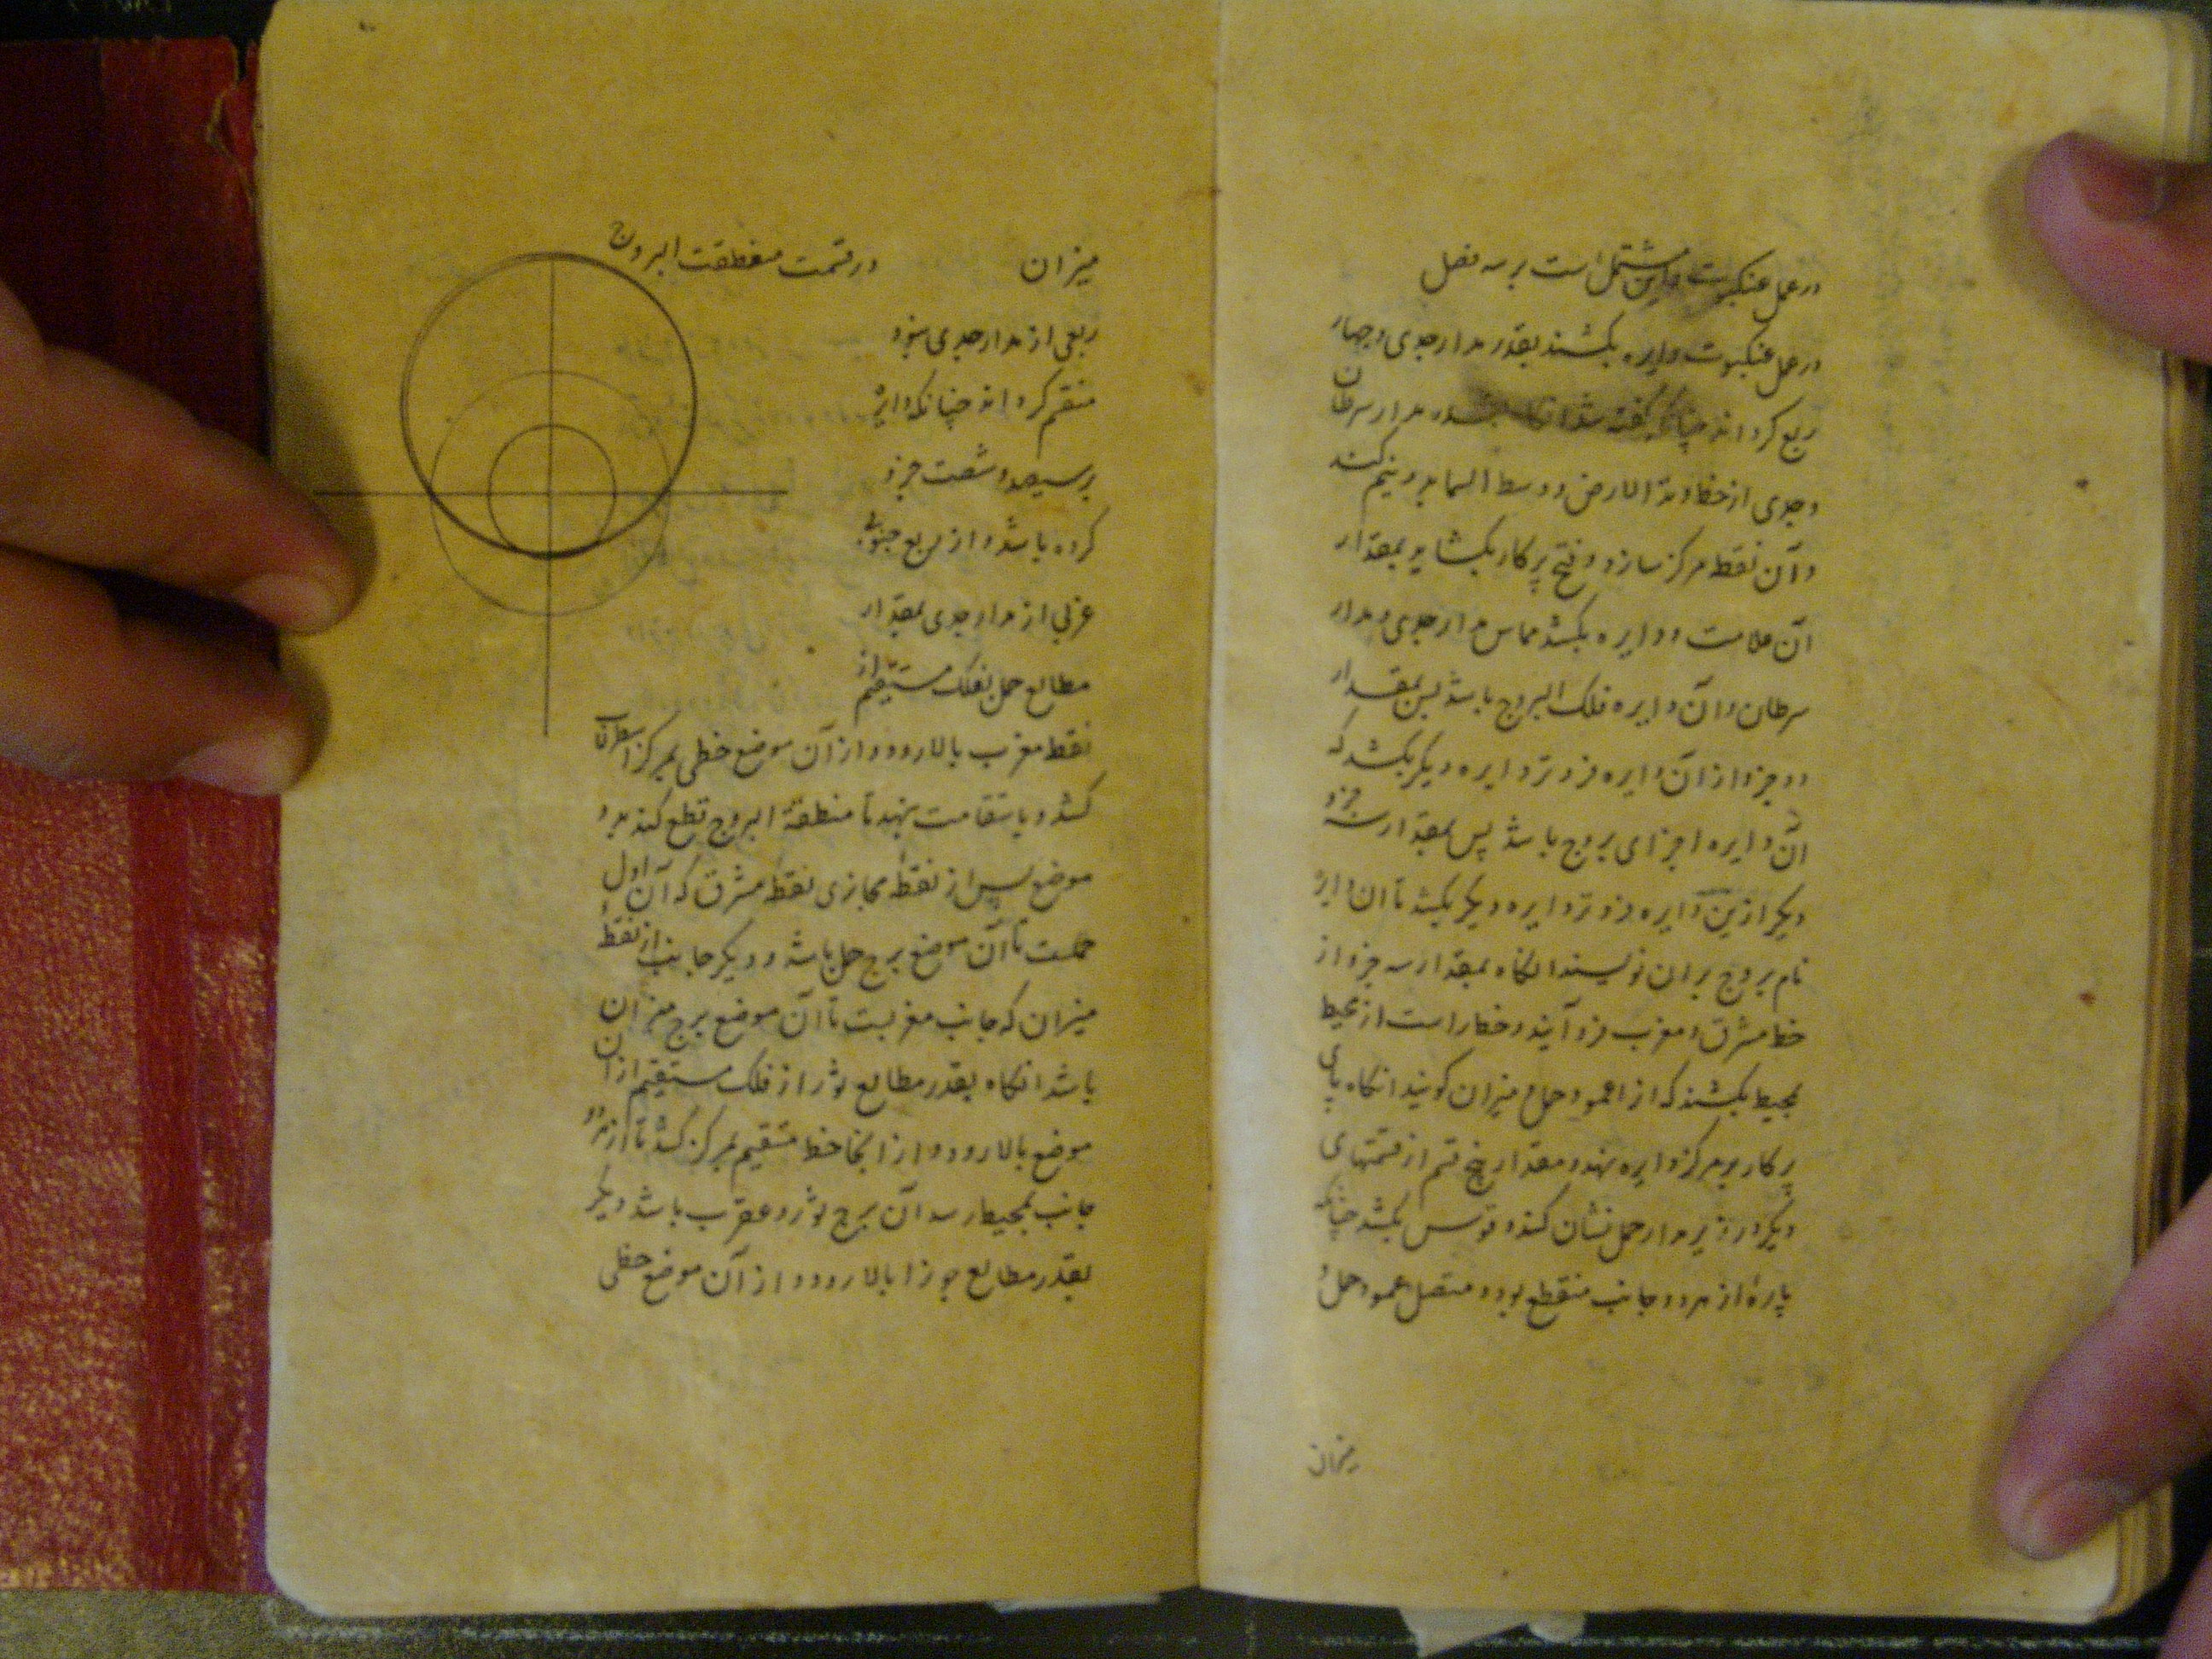 در عمل عنکبوت و این مشتمل است بر سه فصل
در عمل عنکبوت دایره بکشند بقدر مدار جدی و چهار
ربع کرداند چنانکه گفته شد انکاه بقدر مدار سرطان
و جدی از خط وتد الارض و وسط السما بدو نیم کند
و آن نقطه مرکز سازد و فتح پرکار بکشاید بمقدار
آن علامت و دایره بکشد مماس مدار جدی و مدار
سرطان و آن دایره فلک البروج باشد پس بمقدار
دو جزو از آن دایره فروتر دایره دیکر بکشد که
آن دایره اجزای بروج باشد پس بمقدار سه جزو
دیکر ازین دایره فروتر دایره دیکر بکشد تا ان دایره
نام بروج بران نویسند انکاه بمقدار سه جزو از
خط مشرق و مغرب فرو آیند و خط راست از محیط
بمحیط بکشند که از اعمود حمل و میزان کویند انکاه پای
پرکار بر مرکز دایره نهد و مقدار پنج قسم از قسمتهای
دیکر در زیر مدار حمل نشان کند و قوس بکشد چنانکه
پاره از هر دو جانب منقطع بود و متصل عمود حمل و
میزان
میزان در قسمت منطقت البروج
ربعی از مدار جدی بنود
منقسم کرداند چنانکه دایره
بر سیصد و شصت جزو
کرده باشد و از ربع جنوبی
غربی از مدار جدی بمقدار
مطالع حمل بفلک مستقیم از
نقطه مغرب بالا رود و از آن موضع خطی بمرکز اسطرلاب
کشد و باستقامت نهد تا منطقة البروج قطع کند بدو
موضع پس از نقطه مجازی نقطه مشرق که آن اول
حملست تا آن موضع برج حمل باشد و دیکر جانب از نقطه
میزان که جانب مغربست تا آن موضع برج میزان
باشد انکاه بقدر مطالع ثور از فلک مستقیم از ان
موضع بالا رود و از انجا خط مستقیم بمرکز کشد تا از هر دو
جانب بمحیط رسد آن برج ثور و عقرب باشد دیکر
بقدر مطالع جوزا بالا رود و از آن موضع خطی